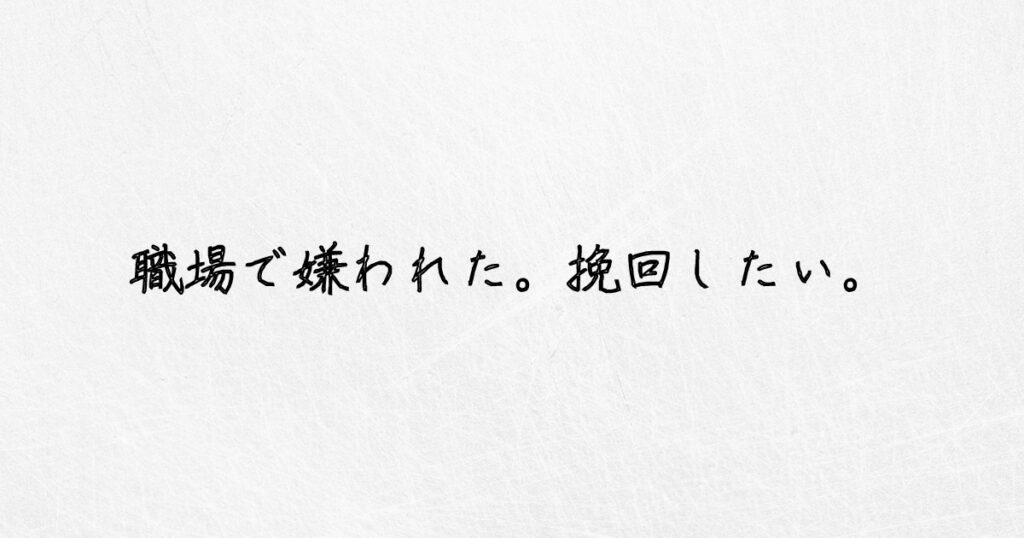 職場で嫌われた。挽回したい。